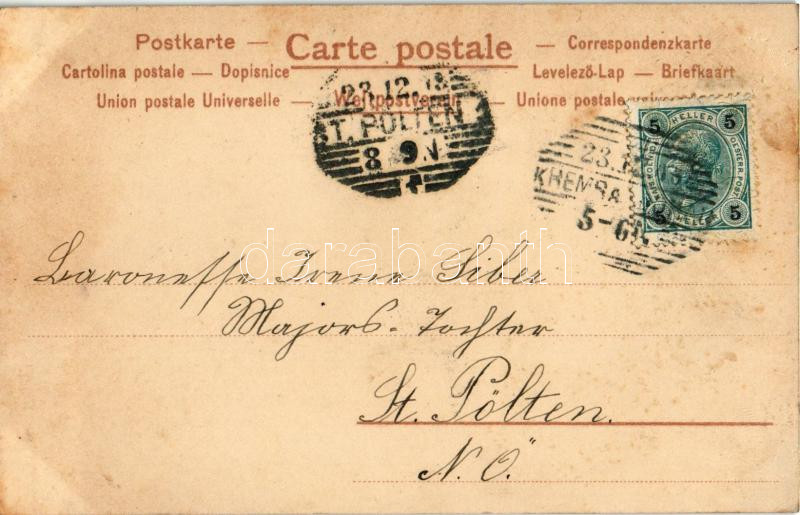 Postkarte — Carte postale — Correspondenzkarte
Cartolina postale — Dopisnice Levelező-Lap — Briefkaart
Union postale Universelle — Weltpostverein — Unione postale
23.12.
ST. PÖLTEN 1
8 9.V
23.12
KREMS A
5-6N
5 HELLER 5
OESTERR. POST
5 HELLER 5
Baronesse Irene Siber
Majors-Tochter
St. Pölten.
N.Ö.
darabanth